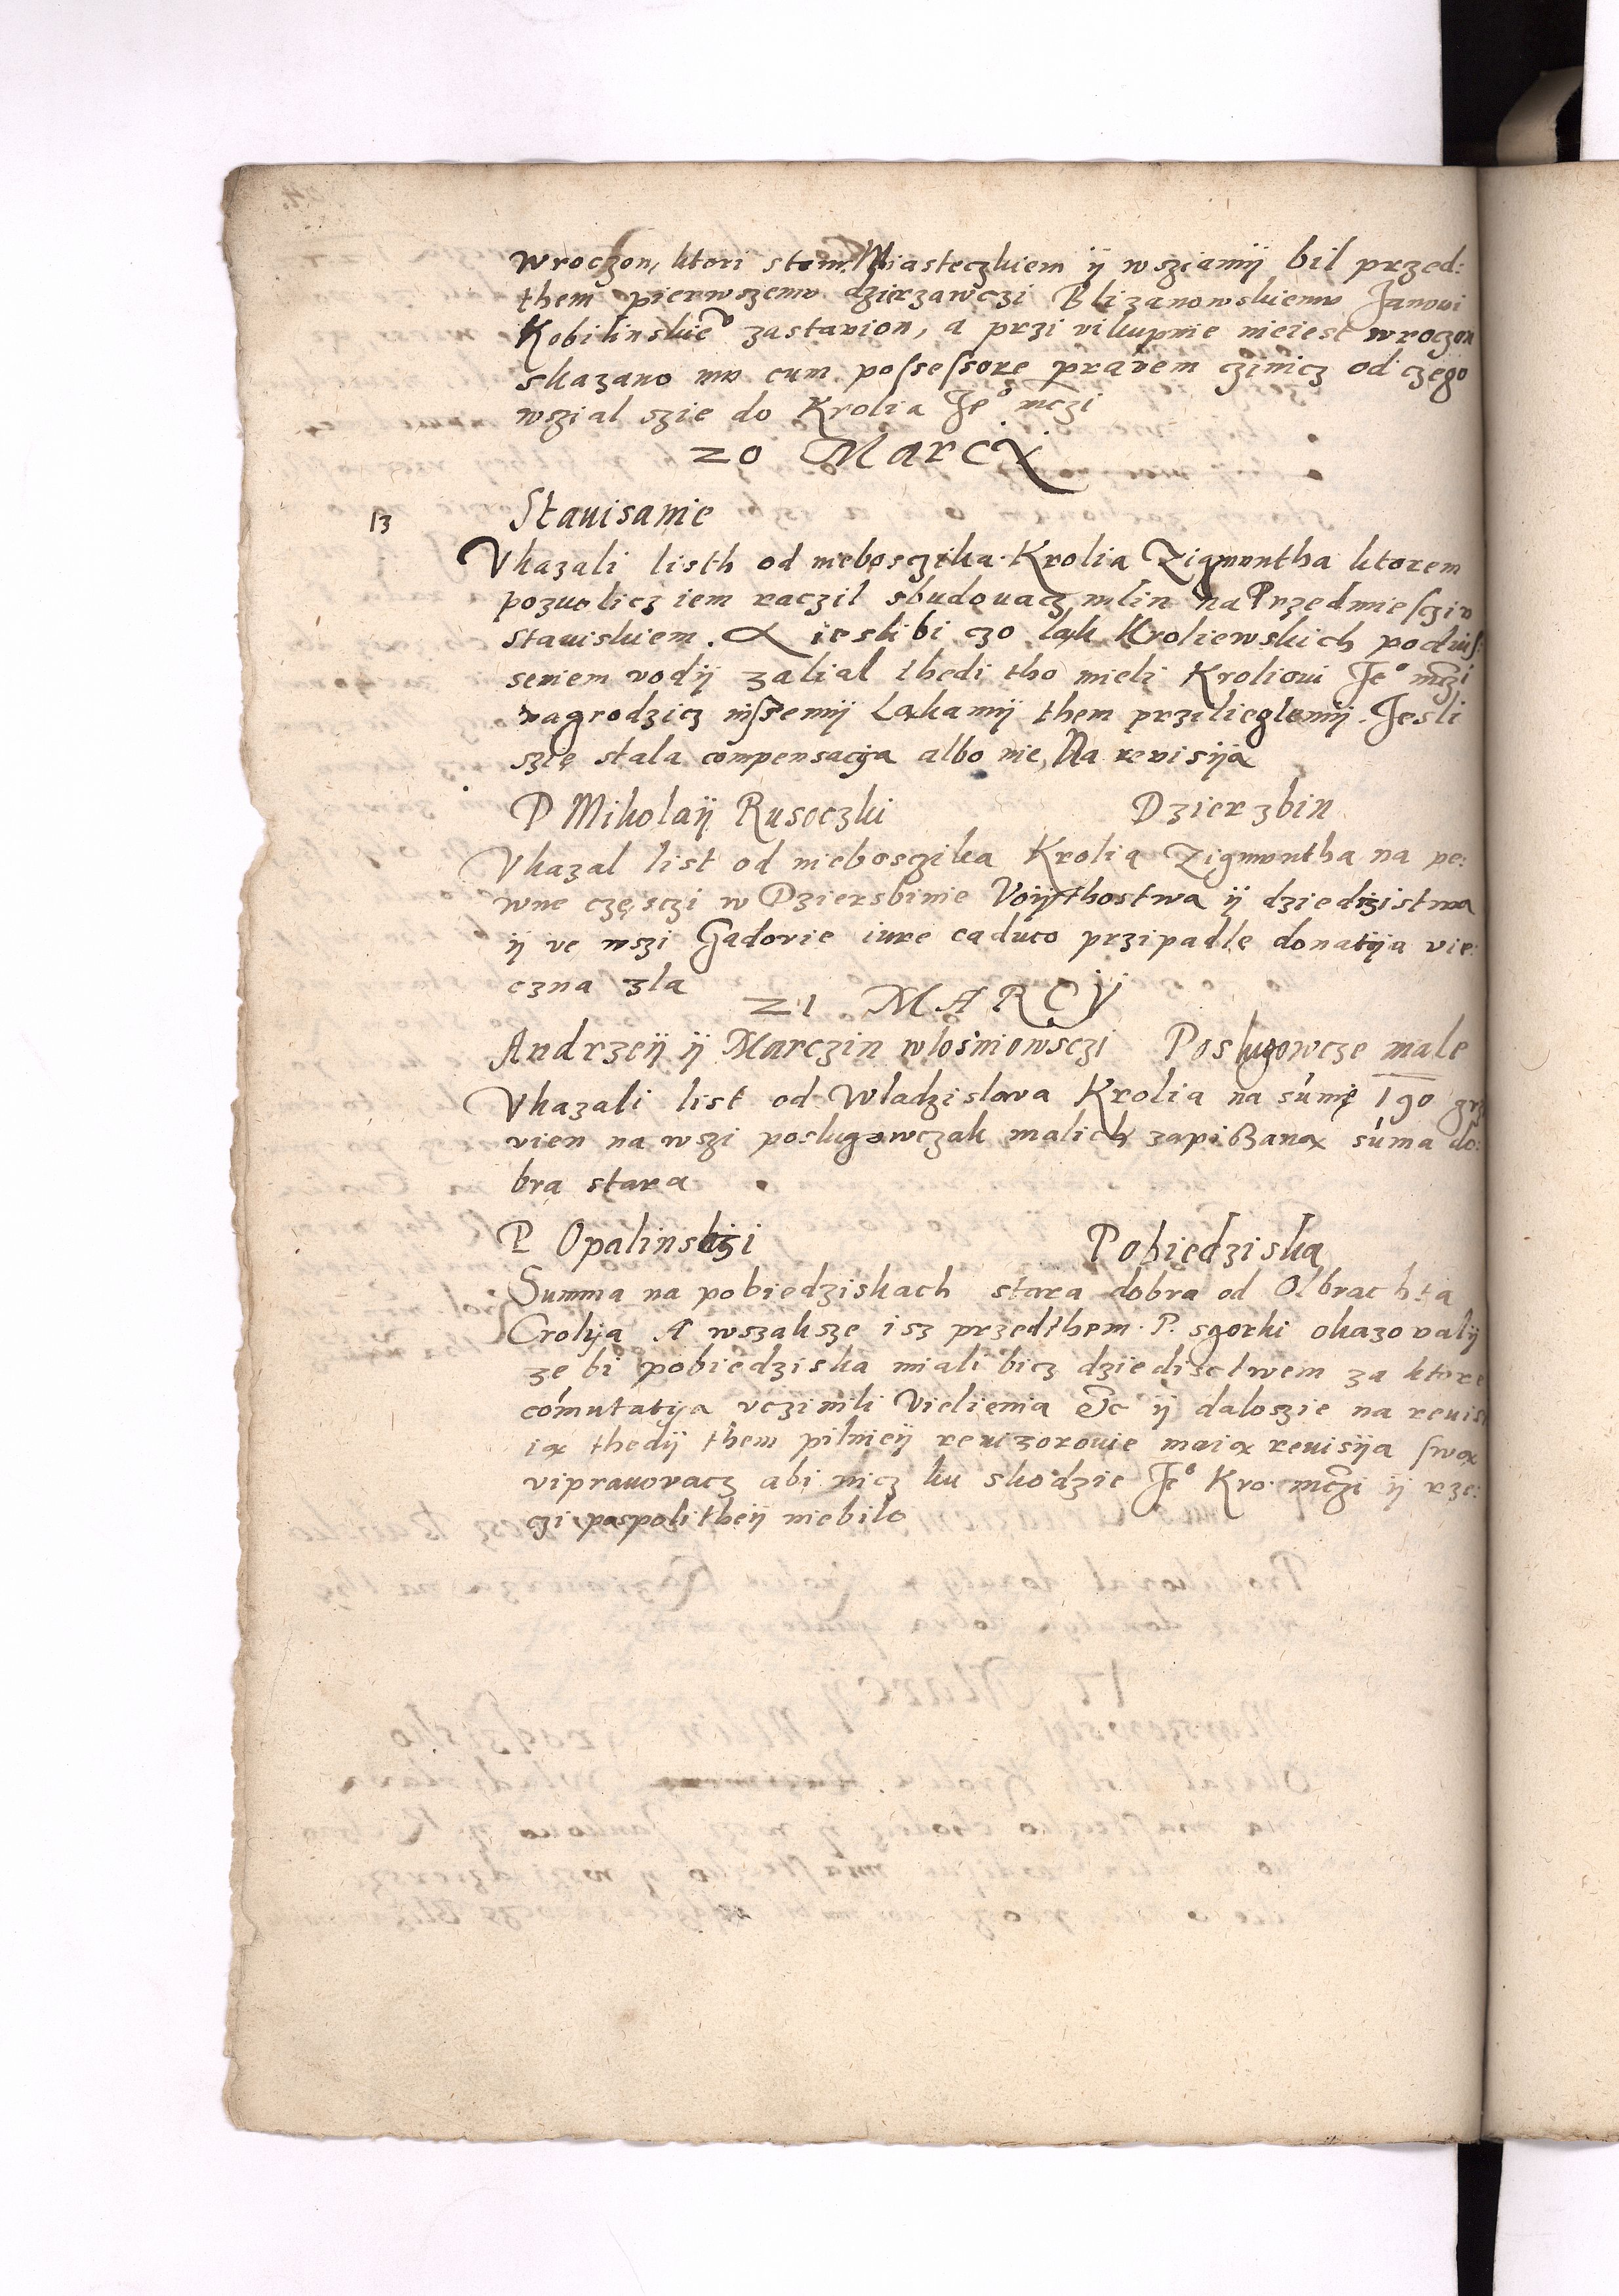 wroczon, ktori stem Miasteczkiem ÿ wsziamÿ bil przed:
them pierwszemu dzierzawczi Blizanowskiemu Janoui
Kobilinskie⁰ zastavion, a przi vikupnie nieiest wroczon
skazano mu cum possessore pravem czinicz od czego
wszial szie do Krolia Je⁰ mczi
20 Marcÿ
13 Stauisanie
Vkazali listh od niebosczika Krolia Zigmuntha ktorem
pozuolicz iem raczil sbudouacz mlin na Przedmiesciv
stauiskiem. A iesli bi czo ląk Kroliewskich poduis:
seniem vodÿ zalial thedi tho mieli Krolioui Je⁰ mczi
nagrodzicz inssemÿLąkamÿ them przilieglemÿ. Jesli
szię stala compensacÿa albo nie, Na revisiją
P Mikolaÿ Rusoczki Dzierzbin
Vkazal list od niebosczika Krolią Zigmuntha na pe:
wne częsczi w Dziersbinie Voÿthostwa ÿ dziedzistwa
ÿ ve wszi Gadovie iure caduco przipadlę donatÿa vie:
czna zla
21 MARCY
Andrzeÿ ÿ Marczin wlosniowsczi Poslugowcze male
Vkazali list od Wladzislava Krolia na sumę 190 grz
vien na wszi poslugowczak malich zapißaną suma do:
bra stara
P Opalinskzi Pobiedziską
Summa na pobiedziskach stara dobra od Olbrachta
Crolÿa A wszaksze isz przedthem P. sgorki okazovalÿ
ze bi pobiedziska miali bicz dziedisctwem za ktore
comutatÿa vczinili Vielienia &c ÿ daloszie na reuis
ią thedÿ them pilnieÿ reuizorouie maią reuisiją swą
vipravovacz abi nicz ku skodzie Je⁰ Kro mczi ÿ rze:
czi pospolitheÿ niebilo